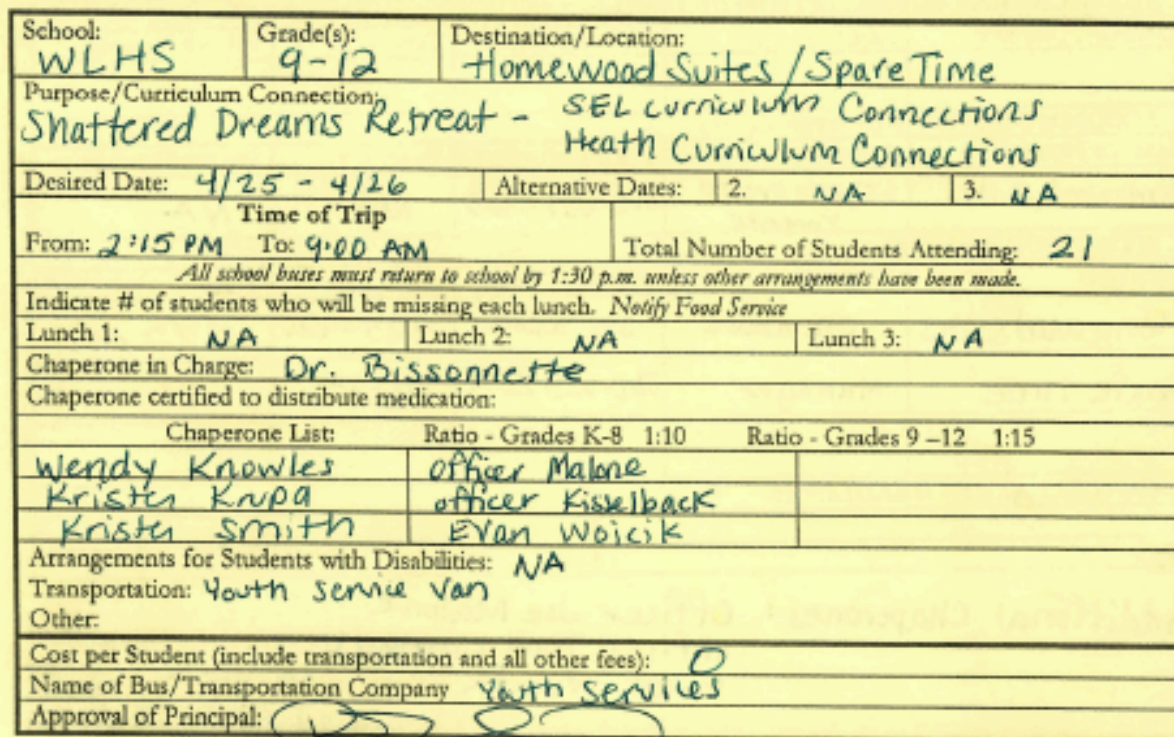 School: Grade(s): Destination/Location:
WLHS 9-12 Homewood Suites / Spare Time
Purpose/Curriculum Connection: SEL curriculum Connections
Shattered Dreams Retreat - Heath Curriculum Connections
Desired Date: 4/25 - 4/26 Alternative Dates: 2. NA 3. NA
Time of Trip
From: 2:15 PM To: 9:00 AM Total Number of Students Attending: 21
All school buses must return to school by 1:30 p.m. unless other arrangements have been made.
Indicate # of students who will be missing each lunch. Notify Food Service
Lunch 1: NA Lunch 2: NA Lunch 3: NA
Chaperone in Charge: Dr. Bissonnette
Chaperone certified to distribute medication:
Chaperone List: Ratio - Grades K-8 1:10 Ratio - Grades 9 –12 1:15
Wendy Knowles officer Malone
Kristen Krupa officer Kisselback
Kristen Smith Evan Wojcik
Arrangements for Students with Disabilities: NA
Transportation: Youth Service Van
Other:
Cost per Student (include transportation and all other fees): 0
Name of Bus/Transportation Company Youth Services
Approval of Principal: